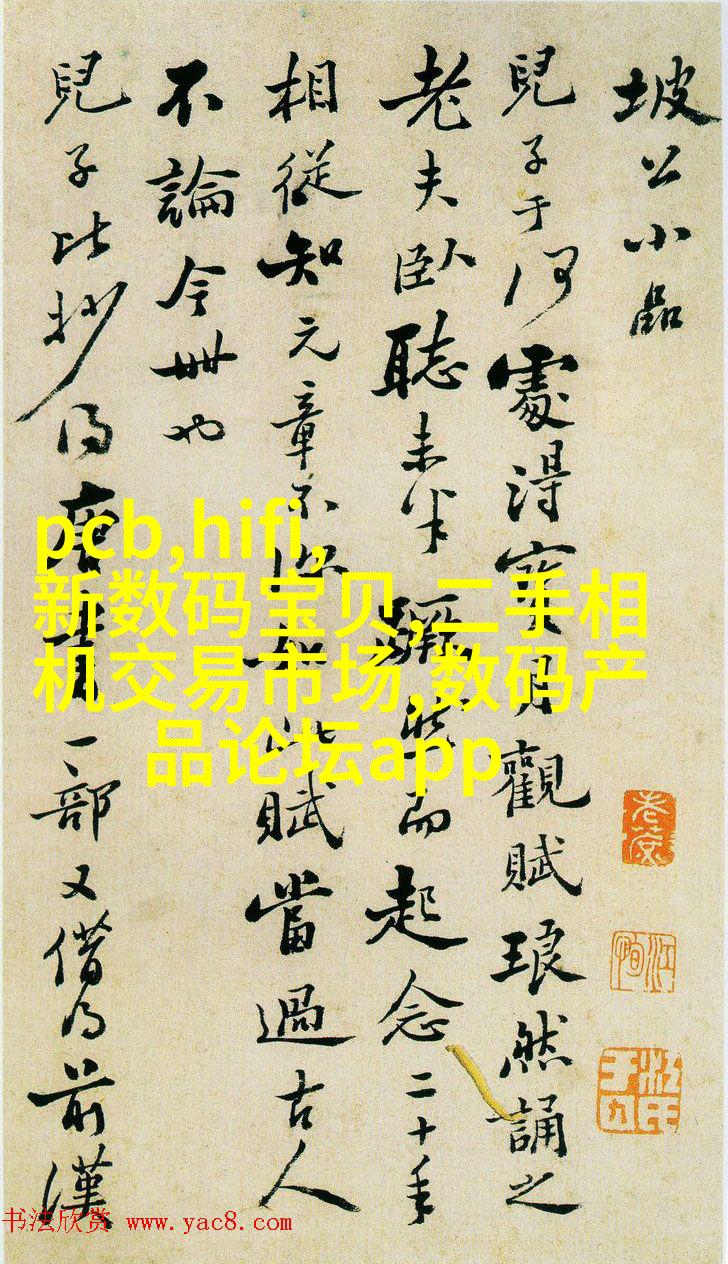 坡公小品
兒子于何處得寶月觀賦琅然誦之
老夫臥聽未半躍然而起念二十年
相從知元章不如此賦當過古人
不論今世也
兒子比抄得唐書一部又借得前漢
pcb,hifi,
新数码宝贝,二手相
机交易市场,数码产
品论坛app
书法欣赏 www.yac8.com